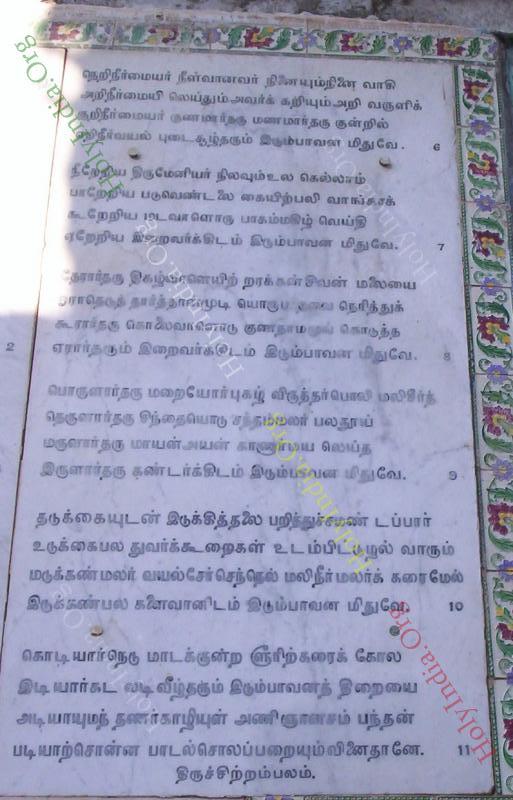 நெறிநீர்மையர் நீள்வானவர் நினையும்நினை வாகி
அறிநீர்மையி லெய்தும்அவர்க் கறியும்அறி வருளிக்
குறிநீர்மையர் குணமார்தரு மணமார்தரு குன்றில்
எறிநீர்வயல் புடைசூழ்தரும் இடும்பாவன மிதுவே. 6
நீறேறிய திருமேனியர் நிலவும்உல கெல்லாம்
பாறேறிய படுவெண்டலை கையிற்பலி வாங்காக்
கூறேறிய மடவாளொரு பாகம்மகிழ் வெய்தி
ஏறேறிய இறைவர்க்கிடம் இடும்பாவன மிதுவே. 7
தேரார்தரு திகழ்வாளெயிற் றரக்கன்சிவன் மலையை
ஓராதெடுத் தார்த்தான்முடி யொருப நெரித்துக்
கூரார்தரு கொலைவாளொடு குணநாமமுங் கொடுத்த
ஏரார்தரும் இறைவர்க்கிடம் இடும்பாவன மிதுவே. 8
2
பொருளார்தரு மறையோர்புகழ் விருத்தர்பொலி மலிசீர்த்
தெருளார்தரு சிந்தையொடு சந்தம்மலர் பலதூய்
மருளார்தரு மாயன்அயன் காணாமை யெய்த
இருளார்தரு கண்டர்க்கிடம் இடும்பாவன மிதுவே. 9
தடுக்கையுடன் இடுக்கித்தலை பறித்துச்சமண் டப்பார்
உடுக்கைபல துவர்க்கூறைகள் உடம்பிட்டுழல் வாரும்
மடுக்கண்மலர் வயல்சேர்செந்நெல் மலிநீர்மலர்க் கரைமேல்
இடுக்கண்பல களைவானிடம் இடும்பாவன மிதுவே. 10
கொடியார்நெடு மாடக்குன்ற ளூரிற்கரைக் கோல
இடியார்கட லடிவீழ்தரும் இடும்பாவனத் திறையை
அடியாயுமந் தணர்காழியுள் அணிஞானசம் பந்தன்
படியாற்சொன்ன பாடல்சொலப்பறையும்வினைதானே. 11
திருச்சிற்றம்பலம்.
HolyIndia.Org
HolyIndia.Org
HolyIndia.Org
HolyIndia.Org
HolyIndia.Org
HolyIndia.Org